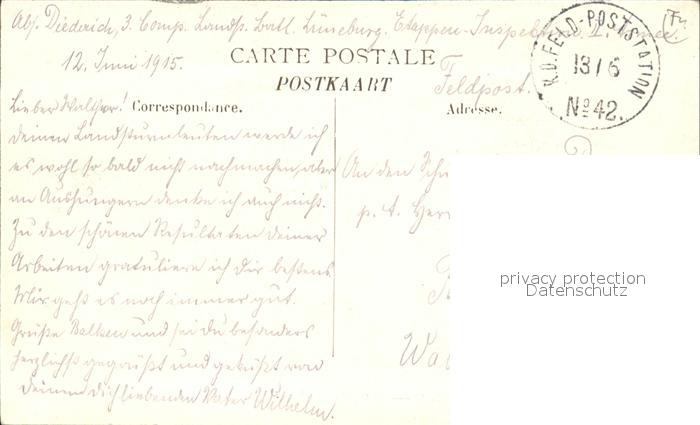 Abs. Diederich, 3. Comp. Landst. Batl. Lüneburg. Etappen-Inspektion I. Armee.
12. Juni 1915.
CARTE POSTALE
POSTKAART
Feldpost.
K.D. FELD-POSTSTATION
13/6
No 42.
Correspondance.
Adresse.
Lieber Walther!
Deinen Landsturmleuten werde ich
es wohl so bald nicht nachmachen, aber
an Aushungern denke ich auch nicht.
Zu den schönen Resultaten deiner
Arbeiten gratuliere ich dir bestens
Mir geht es noch immer gut
Grüße und sei du besonders
herzlichst gegrüßt und geküßt von
deinem dich liebenden Vater Wilhelm.
An den
p. A. Herr
privacy protection
Datenschutz